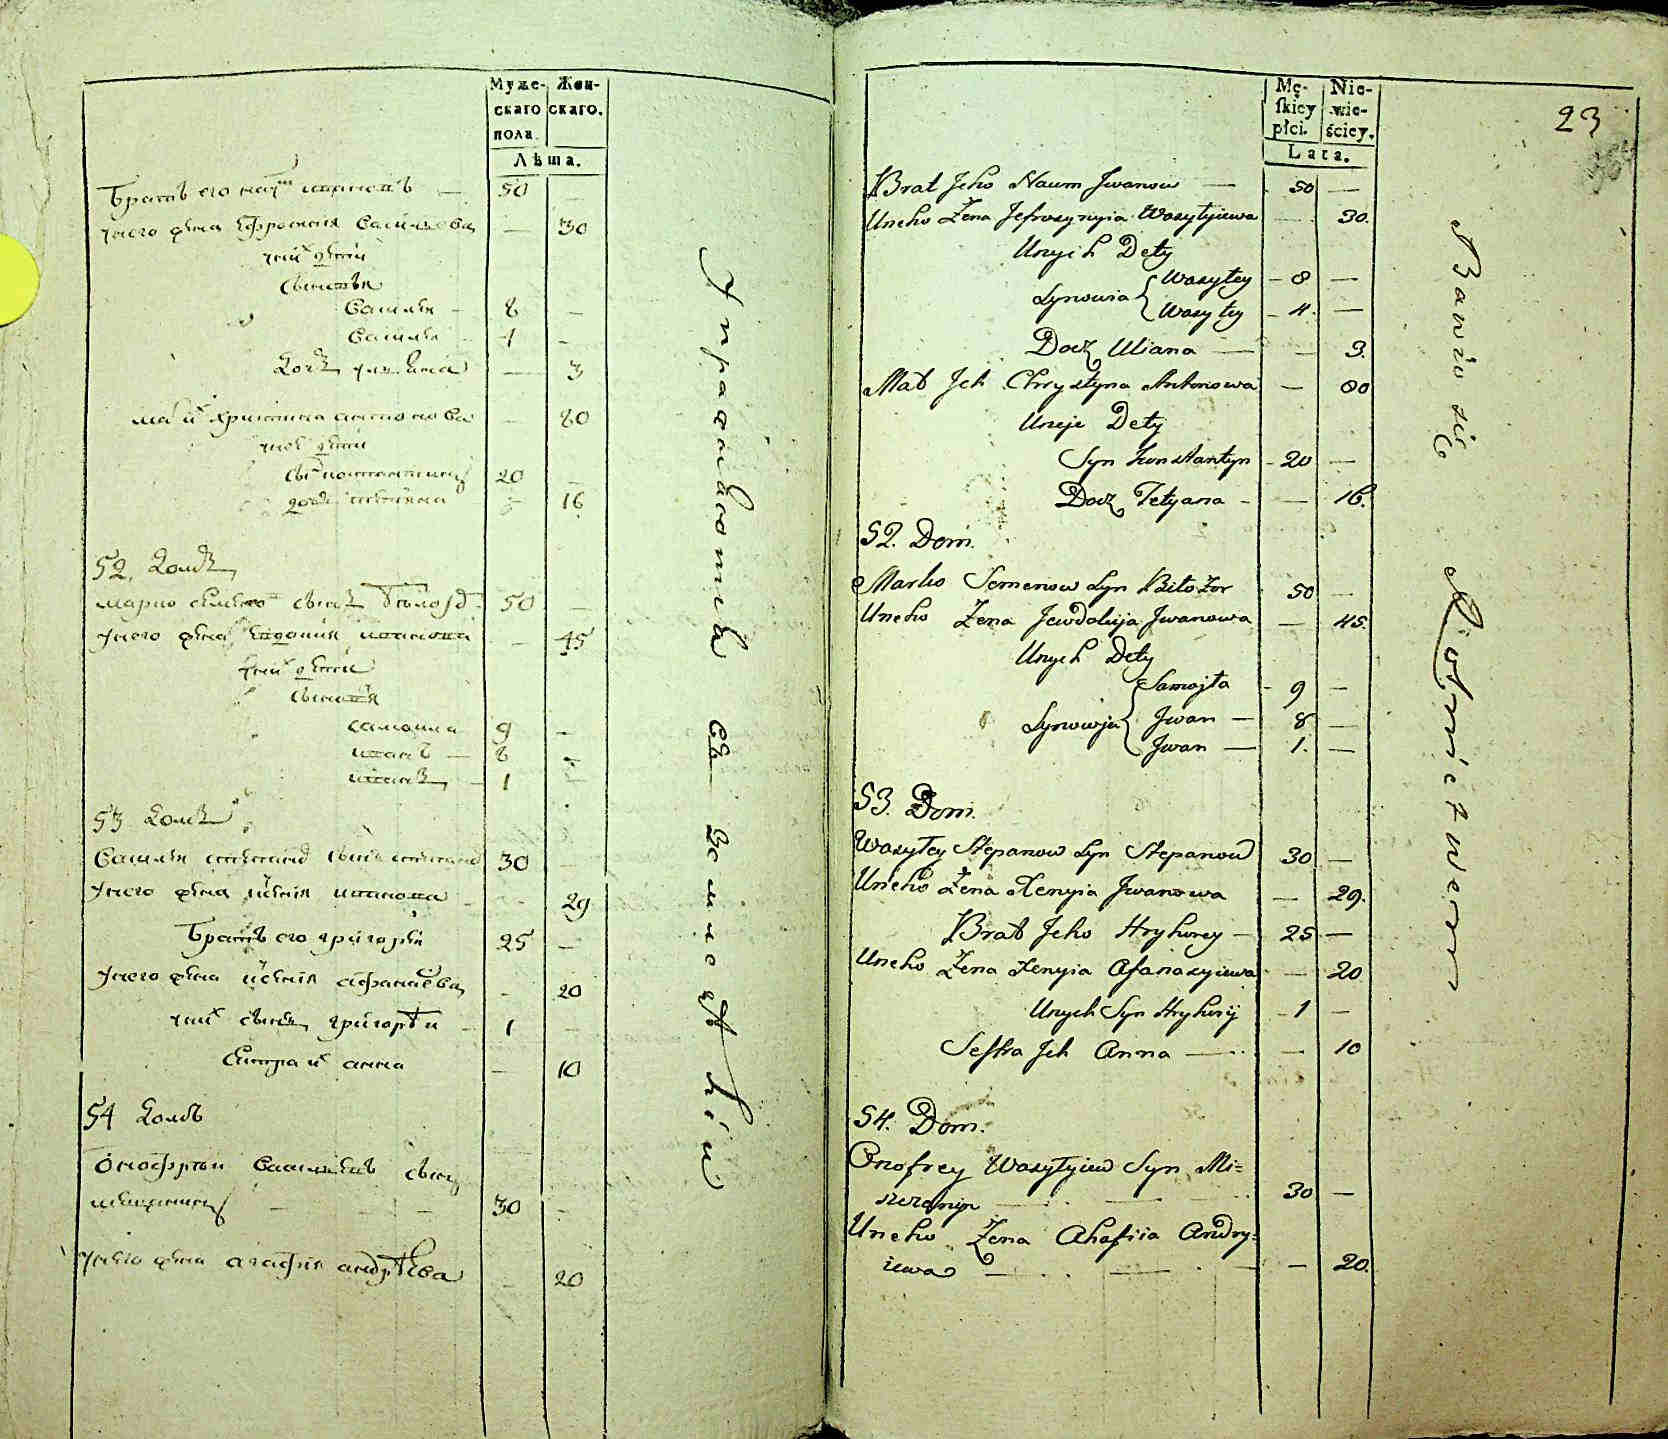 Муже-
скаго
пола.
Жен-
скаго.
Лѣта.
Братъ его наумъ ивановъ — 50
унего жена Ефросинія Василиева — 30
унихъ дѣти
Сыновья
Василий — 8 —
Василий — 4 —
Дочъ улияна — 3
ма ихъ христина антонова — 80
унеи дѣти
Сынъ константинъ 20 —
дочъ татияна — 16
52. Домъ
марко сѣменовъ сынъ Билозо 50 —
унего жена Евдокия иванова — 45
унихъ дѣти
Сыновья
самоила 9 —
иванъ — 8 —
иванъ — 1 —
53 Домъ
Василий степановъ сынъ степановъ 30 —
унего жена ксения иванова — 29
Братъ его григорий 25 —
унего жена ксения афанасева — 20
унихъ сынъ григорѣи 1 —
Сестра ихъ анна — 10
54 Домъ
Онофрѣи Василиевъ сынъ
мищенинъ — 30 —
унего жена агафия андрѣева — 20
Упражняются въ земледѣлии
Mę-
skiey
płci.
Nie-
wie-
ściey.
Lata.
23
Brat Jeho Naum Jwanow — 50 —
Uneho Żena Jefrosynyia Wasyłyiewa — 30.
Unych Dety
Synowia { Wasyłey — 8 —
Wasyłey — 4. —
Docz Uliana — — 3.
Mat Jch Chrystyna Antonowa — 80
Uneje Dety
Syn Konstantyn — 20 —
Docz Tetyana — — 16.
52. Dom.
Marko Semenow Syn Biłozor 50 —
Uneho Żena Jewdokija Jwanowa — 45.
Unych Dety
Synowija { Samojła — 9 —
Jwan — 8 —
Jwan — 1. —
53. Dom.
Wasyłey Stepanow Syn Stepanow 30 —
Uneho Żena Xenyia Jwanowa — 29.
Brat Jeho Hryhorey — 25 —
Uneho Żena Xenyia Afanasyiewa — 20
Unych Syn Hryhorij — 1 —
Sestra Jch Anna — — 10
54. Dom.
Onofrey Wasyłyiew Syn Mi=
szczenin — 30 —
Uneho Żena Ahafiia Andry=
iewa — — 20.
Bawio się Rolnictwem